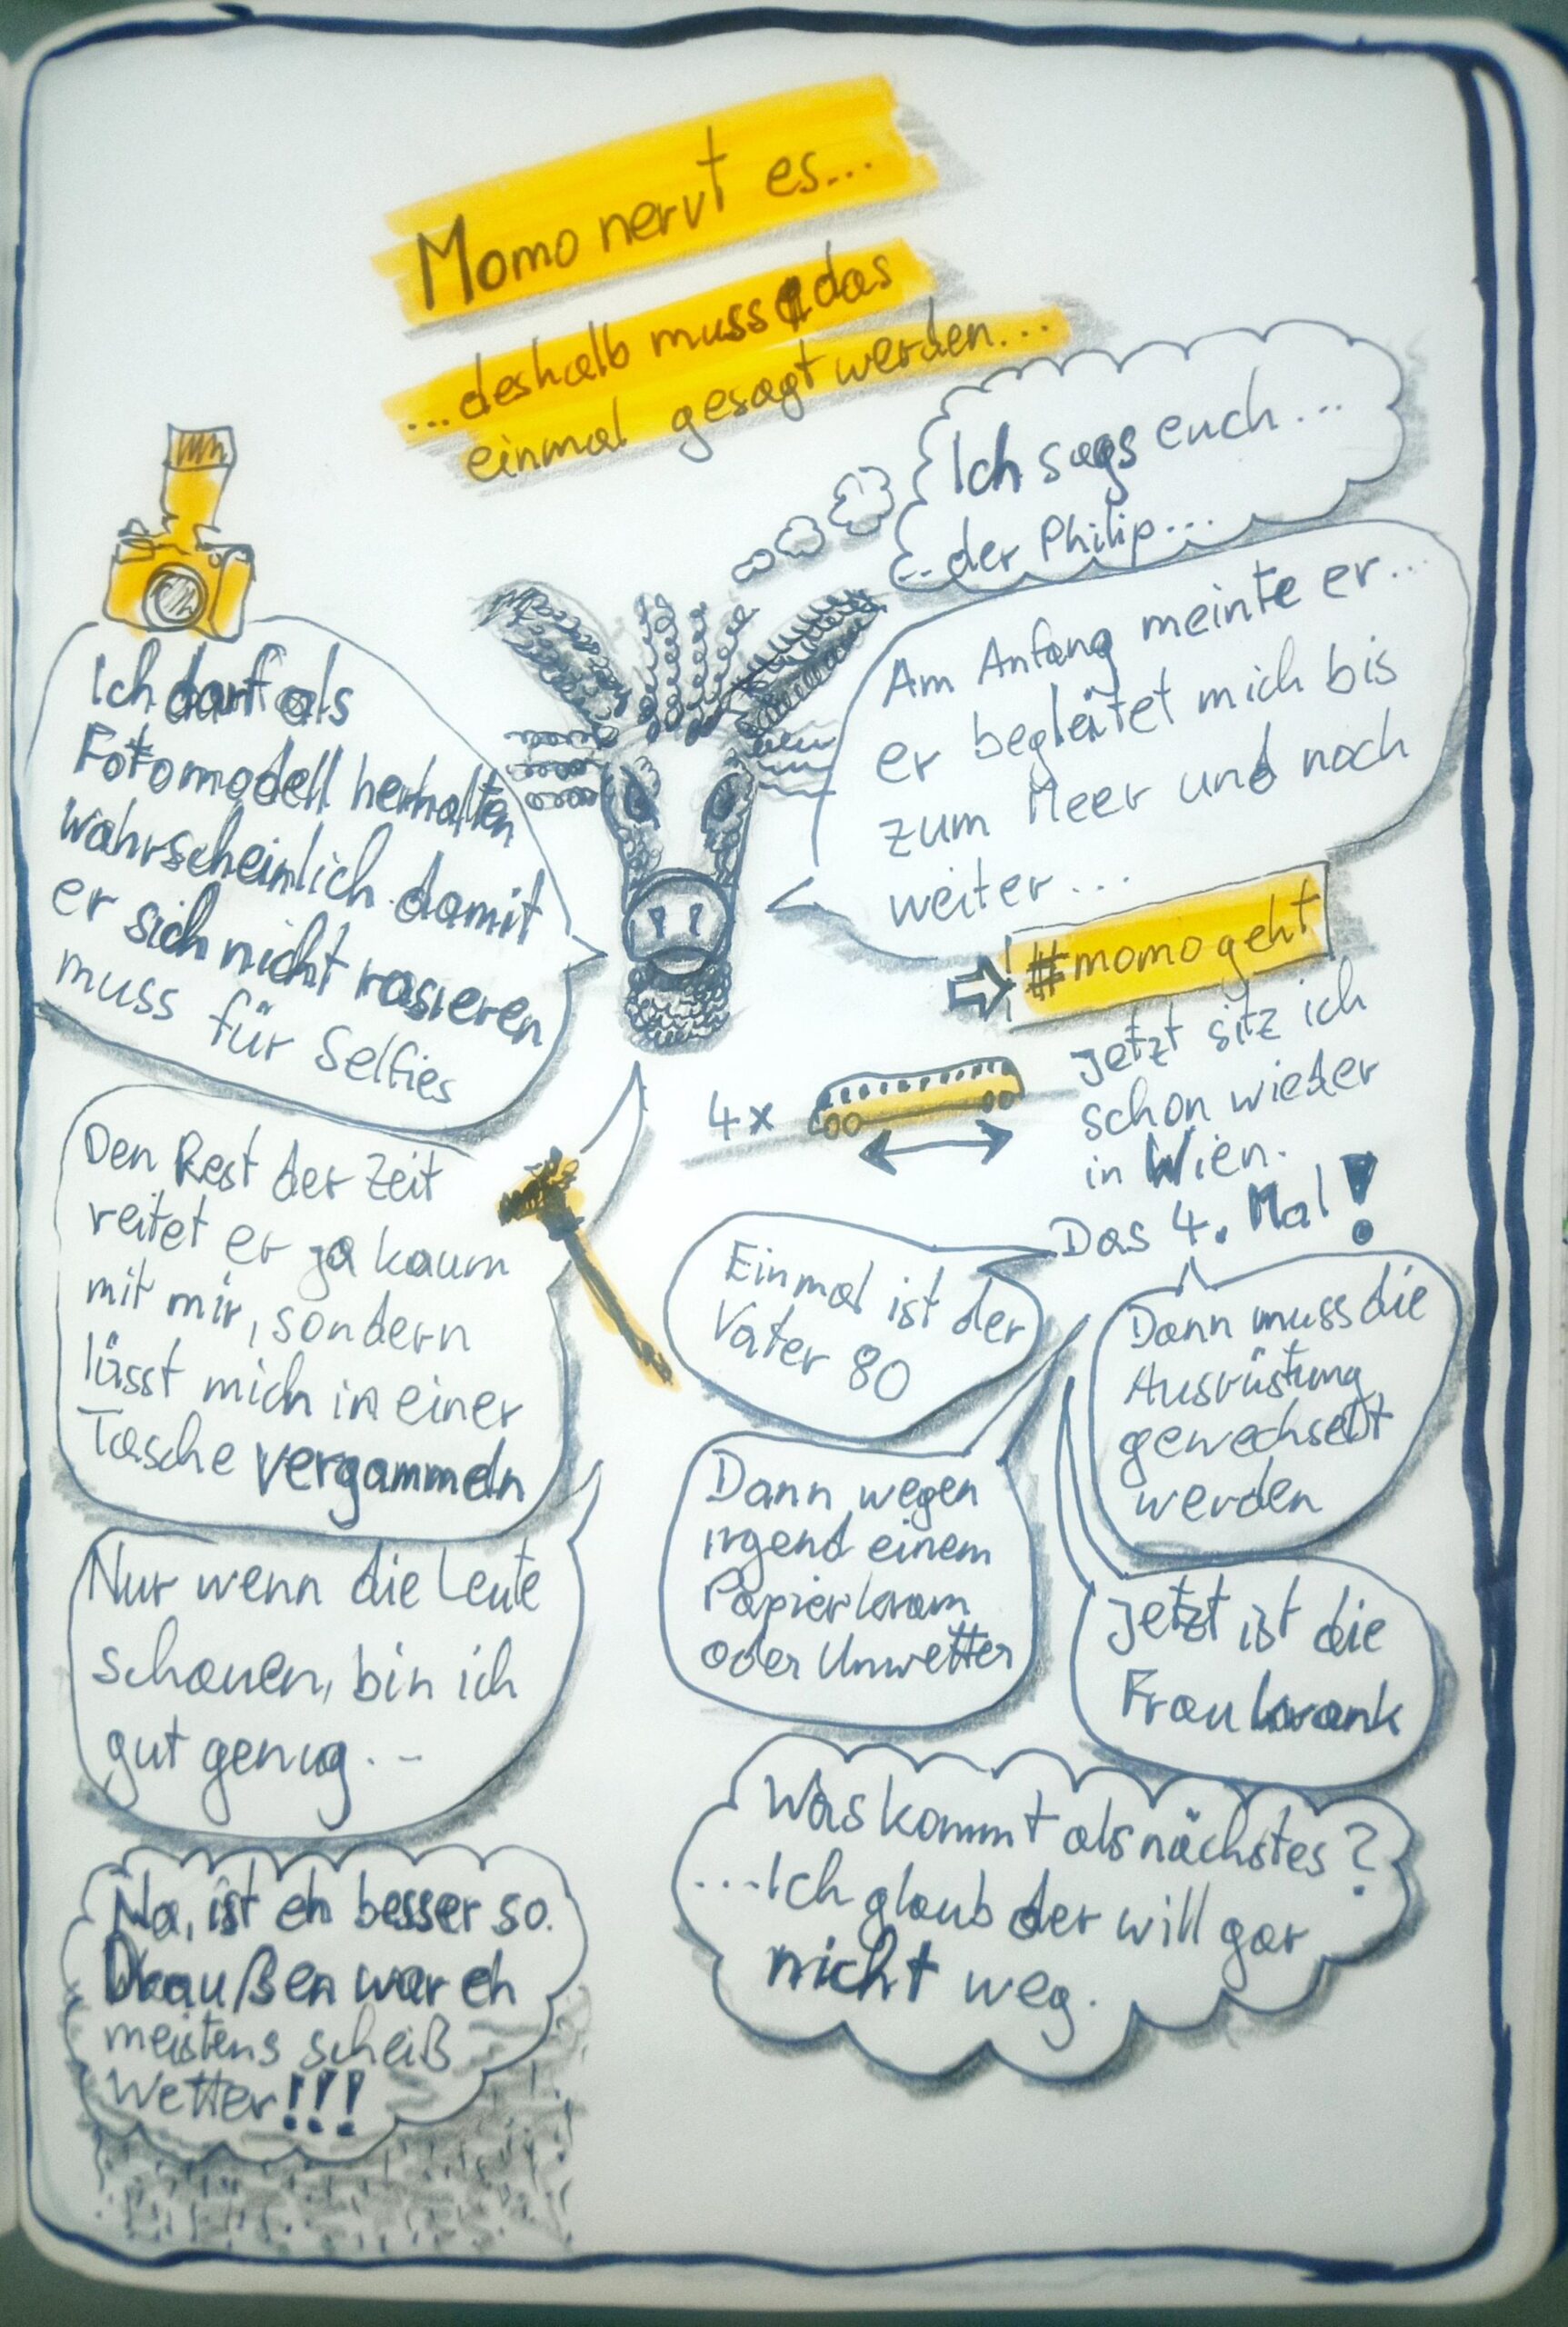 Momo nervt es...
...deshalb muss das
einmal gesagt werden...
Ich sags euch...
...der Philip...
Am Anfang meinte er...
er begleitet mich bis
zum Meer und noch
weiter...
#momogeht
Jetzt sitz ich
schon wieder
in Wien.
Das 4. Mal!
4x
Einmal ist der
Vater 80
Dann muss die
Ausrüstung
gewechselt
werden
Dann wegen
irgend einem
Papierkram
oder Unwetter
Jetzt ist die
Frau krank
Was kommt als nächstes?
...Ich glaub der will gar
nicht weg.
Ich darf als
Fotomodell herhalten
wahrscheinlich damit
er sich nicht rasieren
muss für Selfies
Den Rest der Zeit
reitet er ja kaum
mit mir, sondern
lässt mich in einer
Tasche vergammeln
Nur wenn die Leute
schauen, bin ich
gut genug...
Na, ist eh besser so.
Draußen war eh
meistens scheiß
Wetter!!!